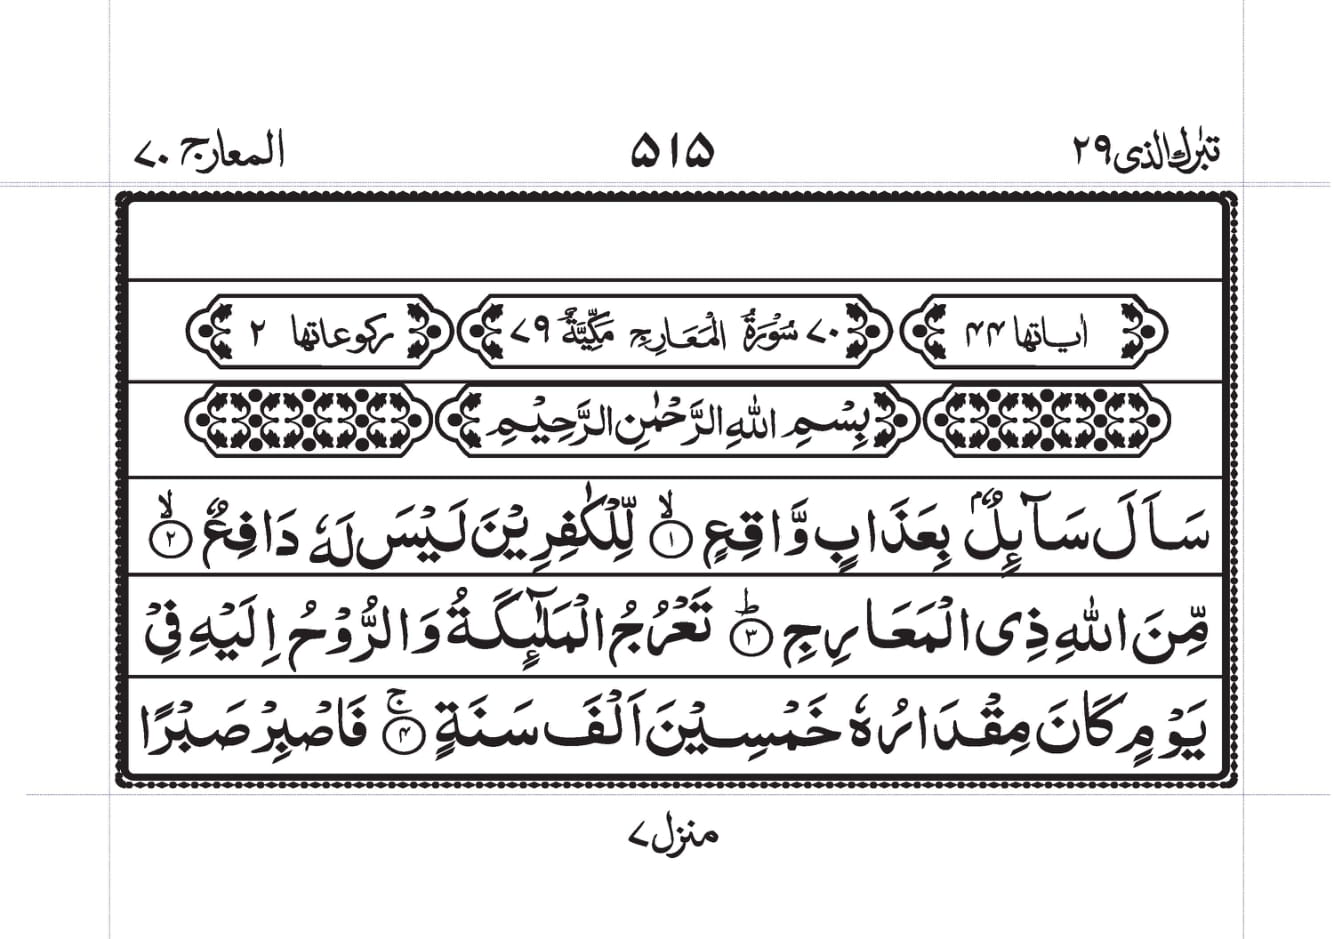 تبٰرك الذی ۲۹ ۵۱۵ المعارج ۷۰
اٰیاتها ۴۴ ۷۰ سُوْرَةُ الْمَعَارِجِ مَكِّیَّةٌ ۷۹ رکوعاتها ۲
بِسْمِ اللّٰهِ الرَّحْمٰنِ الرَّحِیْمِ
سَاَلَ سَآىِٕلٌۢ بِعَذَابٍ وَّاقِعٍ ۙ﴿۱﴾ لِّلْكٰفِرِیْنَ لَیْسَ لَهٗ دَافِعٌ ۙ﴿۲﴾
مِّنَ اللّٰهِ ذِی الْمَعَارِجِ ؕ﴿۳﴾ تَعْرُجُ الْمَلٰٓىِٕكَةُ وَالرُّوْحُ اِلَیْهِ فِیْ
یَوْمٍ كَانَ مِقْدَارُهٗ خَمْسِیْنَ اَلْفَ سَنَةٍ ۚ﴿۴﴾ فَاصْبِرْ صَبْرًا
منزل ۷